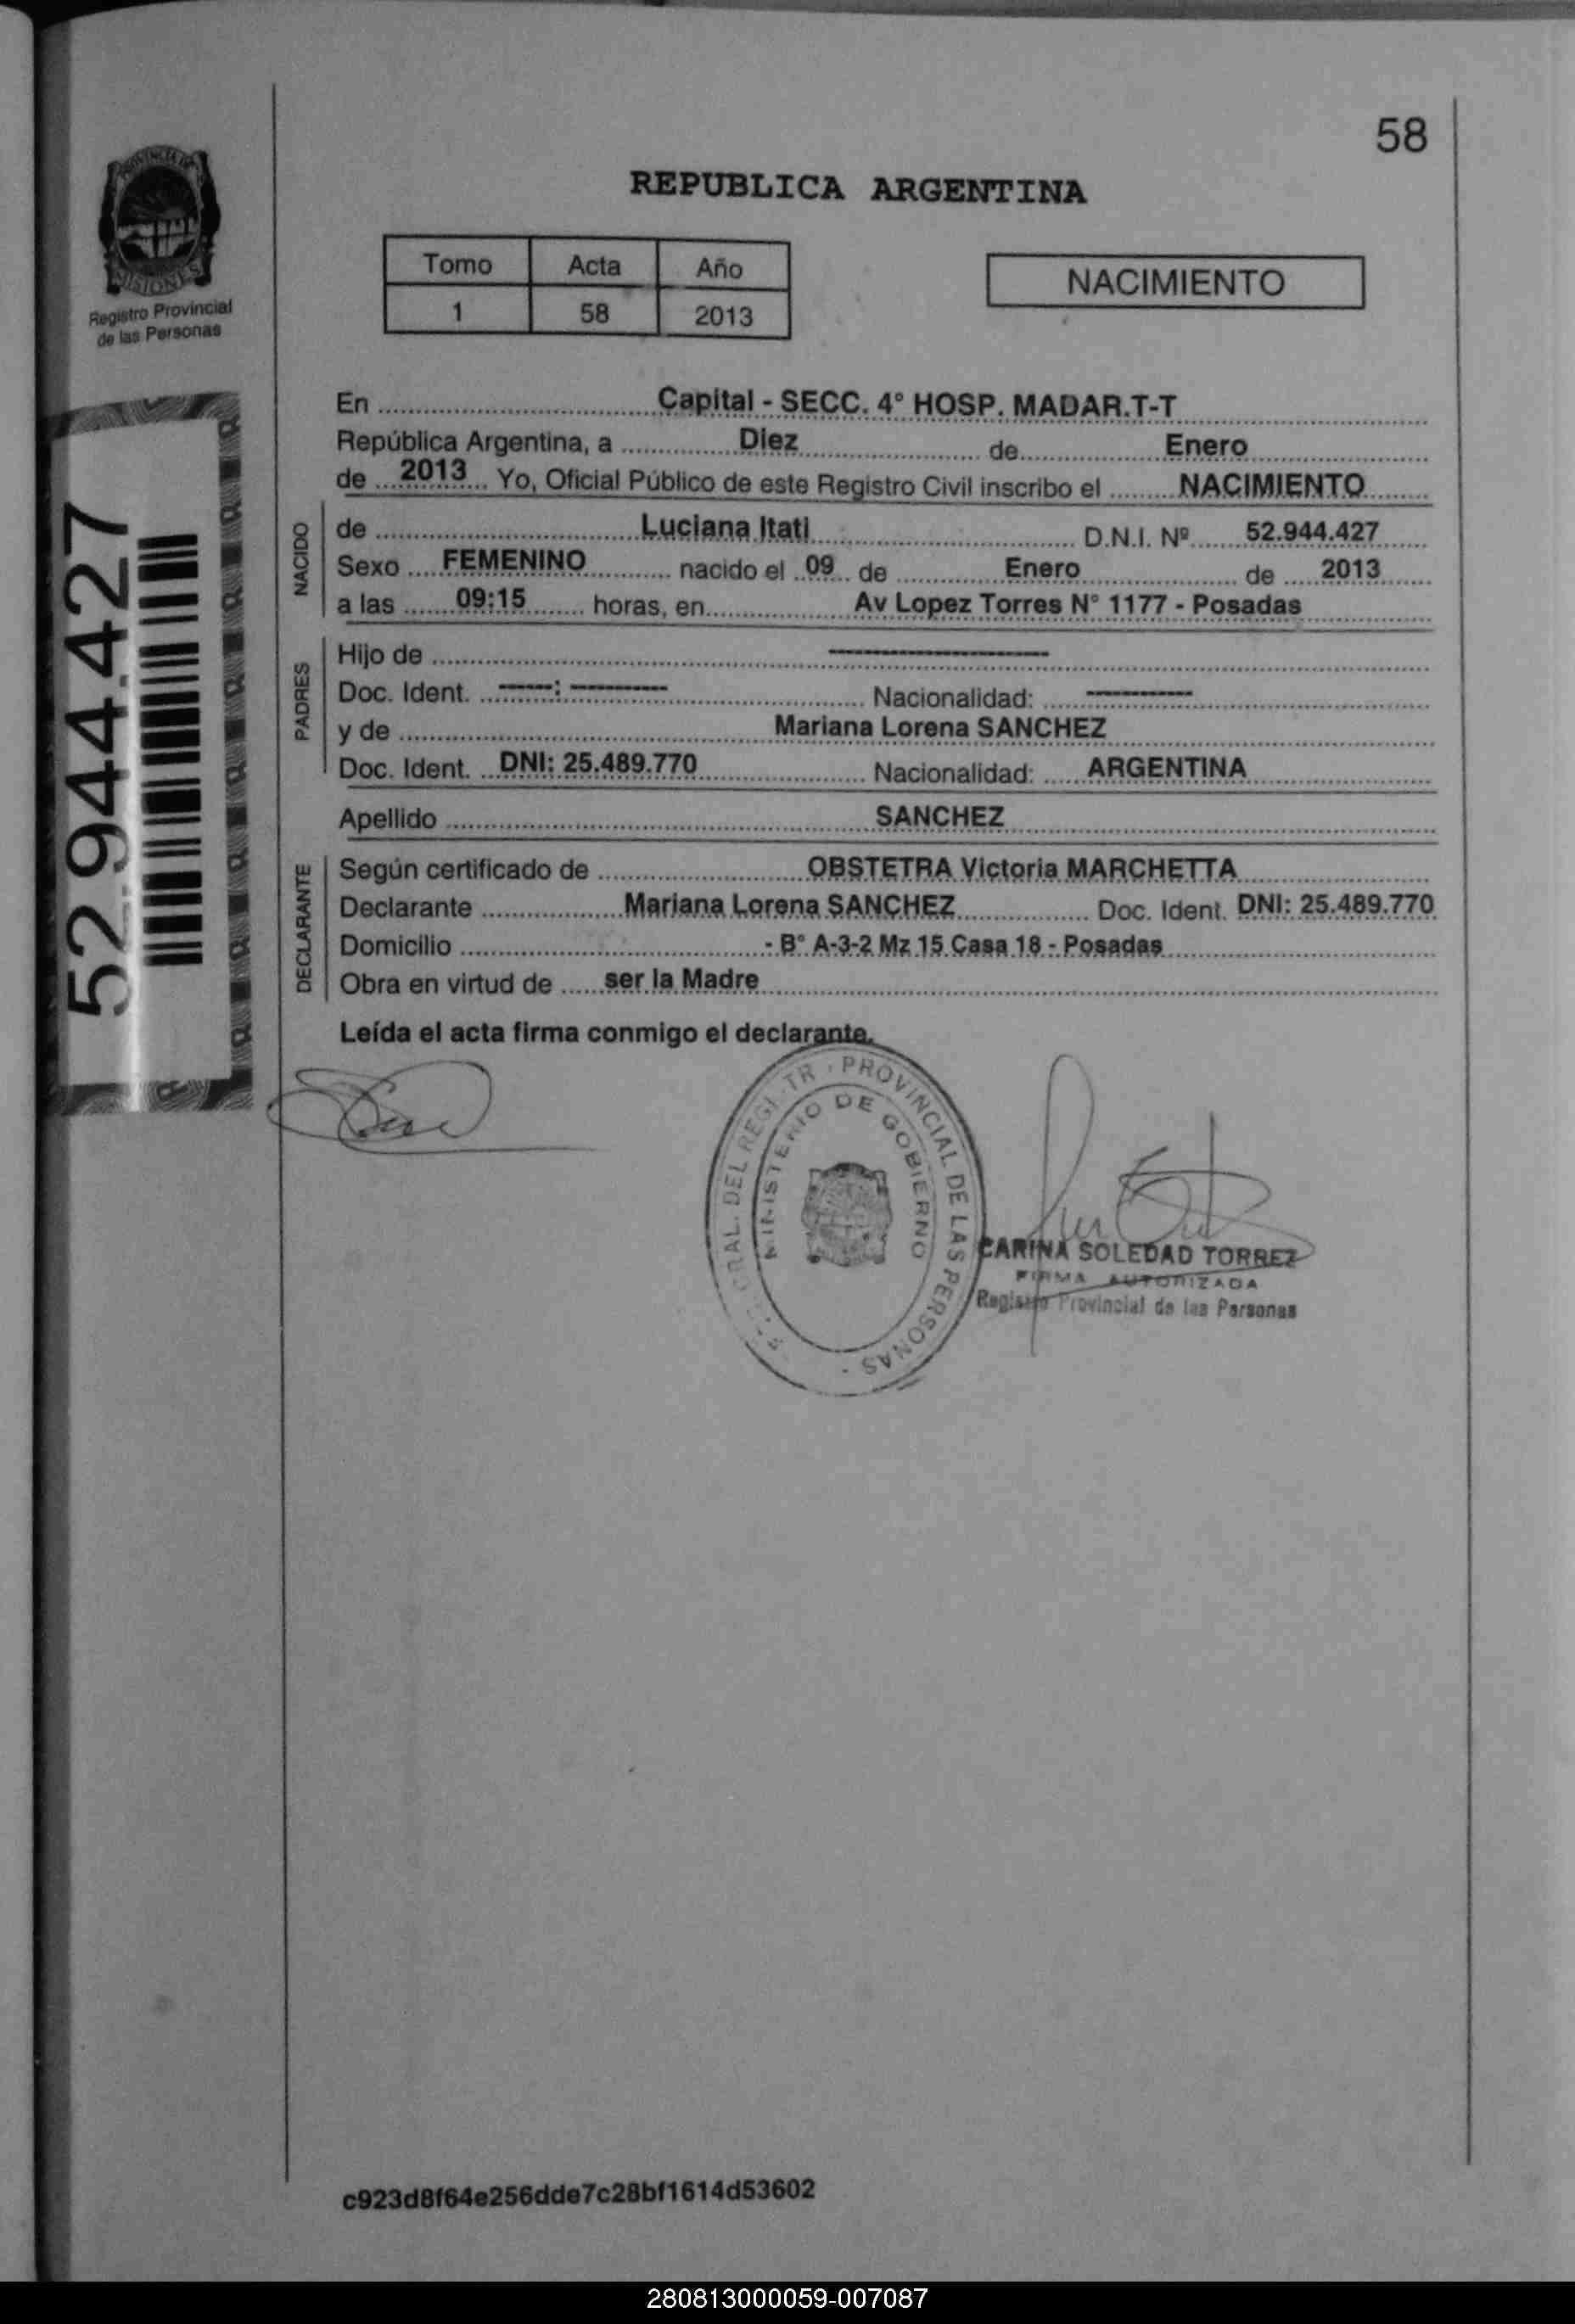 58
PROVINCIA DE
MISIONES
Registro Provincial
de las Personas
REPUBLICA ARGENTINA
Tomo Acta Año
1 58 2013
NACIMIENTO
52.944.427
En Capital - SECC. 4° HOSP. MADAR.T-T
República Argentina, a Diez de Enero
de 2013 Yo, Oficial Público de este Registro Civil inscribo el NACIMIENTO
NACIDO
de Luciana Itati D.N.I. Nº 52.944.427
Sexo FEMENINO nacido el 09 de Enero de 2013
a las 09:15 horas, en Av Lopez Torres N° 1177 - Posadas
PADRES
Hijo de --------------------
Doc. Ident. -----: --------- Nacionalidad: ----------
y de Mariana Lorena SANCHEZ
Doc. Ident. DNI: 25.489.770 Nacionalidad: ARGENTINA
Apellido SANCHEZ
DECLARANTE
Según certificado de OBSTETRA Victoria MARCHETTA
Declarante Mariana Lorena SANCHEZ Doc. Ident. DNI: 25.489.770
Domicilio - B° A-3-2 Mz 15 Casa 18 - Posadas
Obra en virtud de ser la Madre
Leída el acta firma conmigo el declarante.
GRAL. DEL REGISTR PROVINCIAL DE LAS PERSONAS
MINISTERIO DE GOBIERNO
CARINA SOLEDAD TORREZ
FIRMA AUTORIZADA
Registro Provincial de las Personas
c923d8f64e256dde7c28bf1614d53602
280813000059-007087